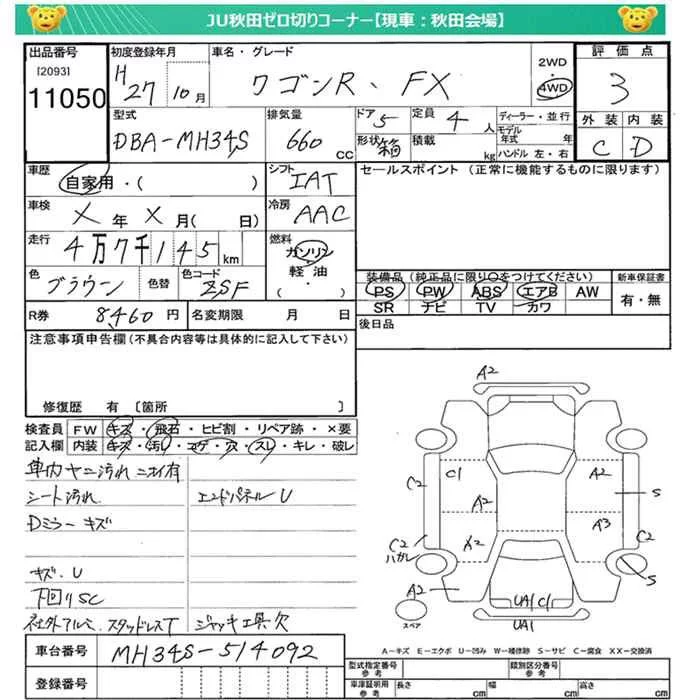 JU秋田ゼロ切りコーナー【現車：秋田会場】
出品番号 初度登録年月 車名・グレード 2WD 評価点
[2093] H27 10月 ワゴンR、FX 4WD 3
11050 型式 排気量 ドア 5 定員 4人 ディーラー・並行 外装 内装
DBA-MH34S 660CC 形状 箱 積載 kg モデル年式 年 C D
ハンドル 左・右
車歴 自家用・( ) シフト IAT セールスポイント（正常に機能するものに限ります）
車検 X年X月( 日) 冷房 AAC
走行 4万7千145km 燃料 ガソリン
軽油・
( )
色 ブラウン 色替 色コード ZSF 装備品（純正品に限り○をつけてください） 新車保証書
PS PW ABS エアB AW 有・無
SR ナビ TV カワ
R券 8460円 名変期限 月 日 後日品
注意事項申告欄（不具合内容等は具体的に記入して下さい）
修復歴 有 〔箇所 〕
検査員 FW キズ・飛石・ヒビ割・リペア跡・×要
記入欄 内装 キズ・汚レ・コゲ・穴・スレ・キレ・破レ
車内ヤニ汚れ ニオイ有
シート汚れ エンドパネルU
Dミラーキズ
キズ、U
下回りSC
社外アルミ、スタッドレスT ジャッキ工具欠
A2
C2 C1 A2 S
A2
C2 ハガレ A2 A3 C2
S
A2 UA1 C1
スペア UA1
A－キズ E－エクボ U－凹み W－補修跡 S－サビ C－腐食 XX－交換済
車台番号 MH34S-514092
型式指定番号 参考 類別区分番号 参考
登録番号 車庫証明用 参考 長さ cm 幅 cm 高さ cm